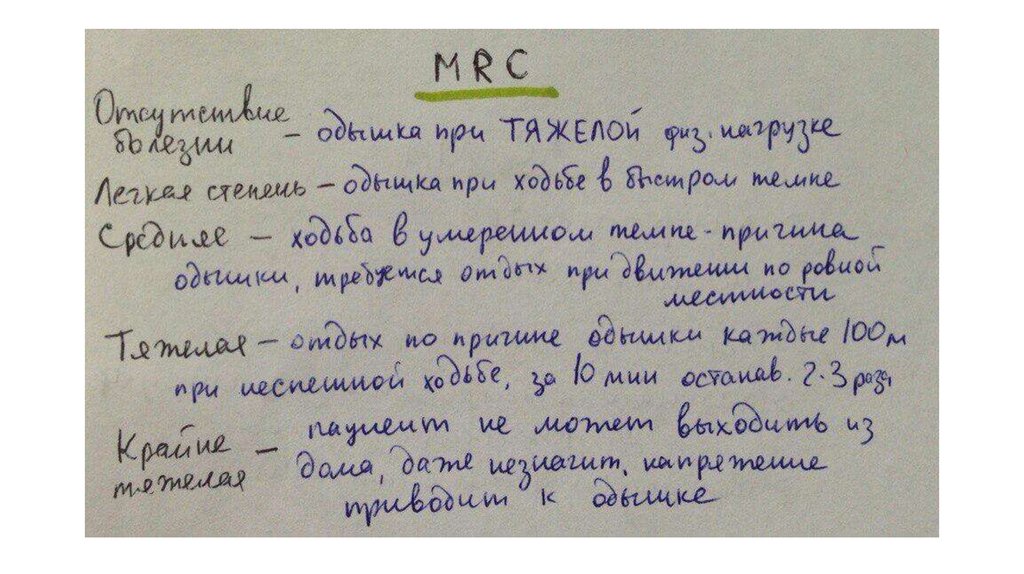 MRC
Отсутствие
болезни – одышка при ТЯЖЕЛОЙ физ. нагрузке
Легкая степень – одышка при ходьбе в быстром темпе
Средняя – ходьба в умеренном темпе - причина
одышки, требуется отдых при движении по ровной
местности
Тяжелая – отдых по причине одышки каждые 100м
при неспешной ходьбе, за 10 мин останав. 2-3 раза
Крайне – пациент не может выходить из
тяжелая дома, даже незначит. напряжение
приводит к одышке